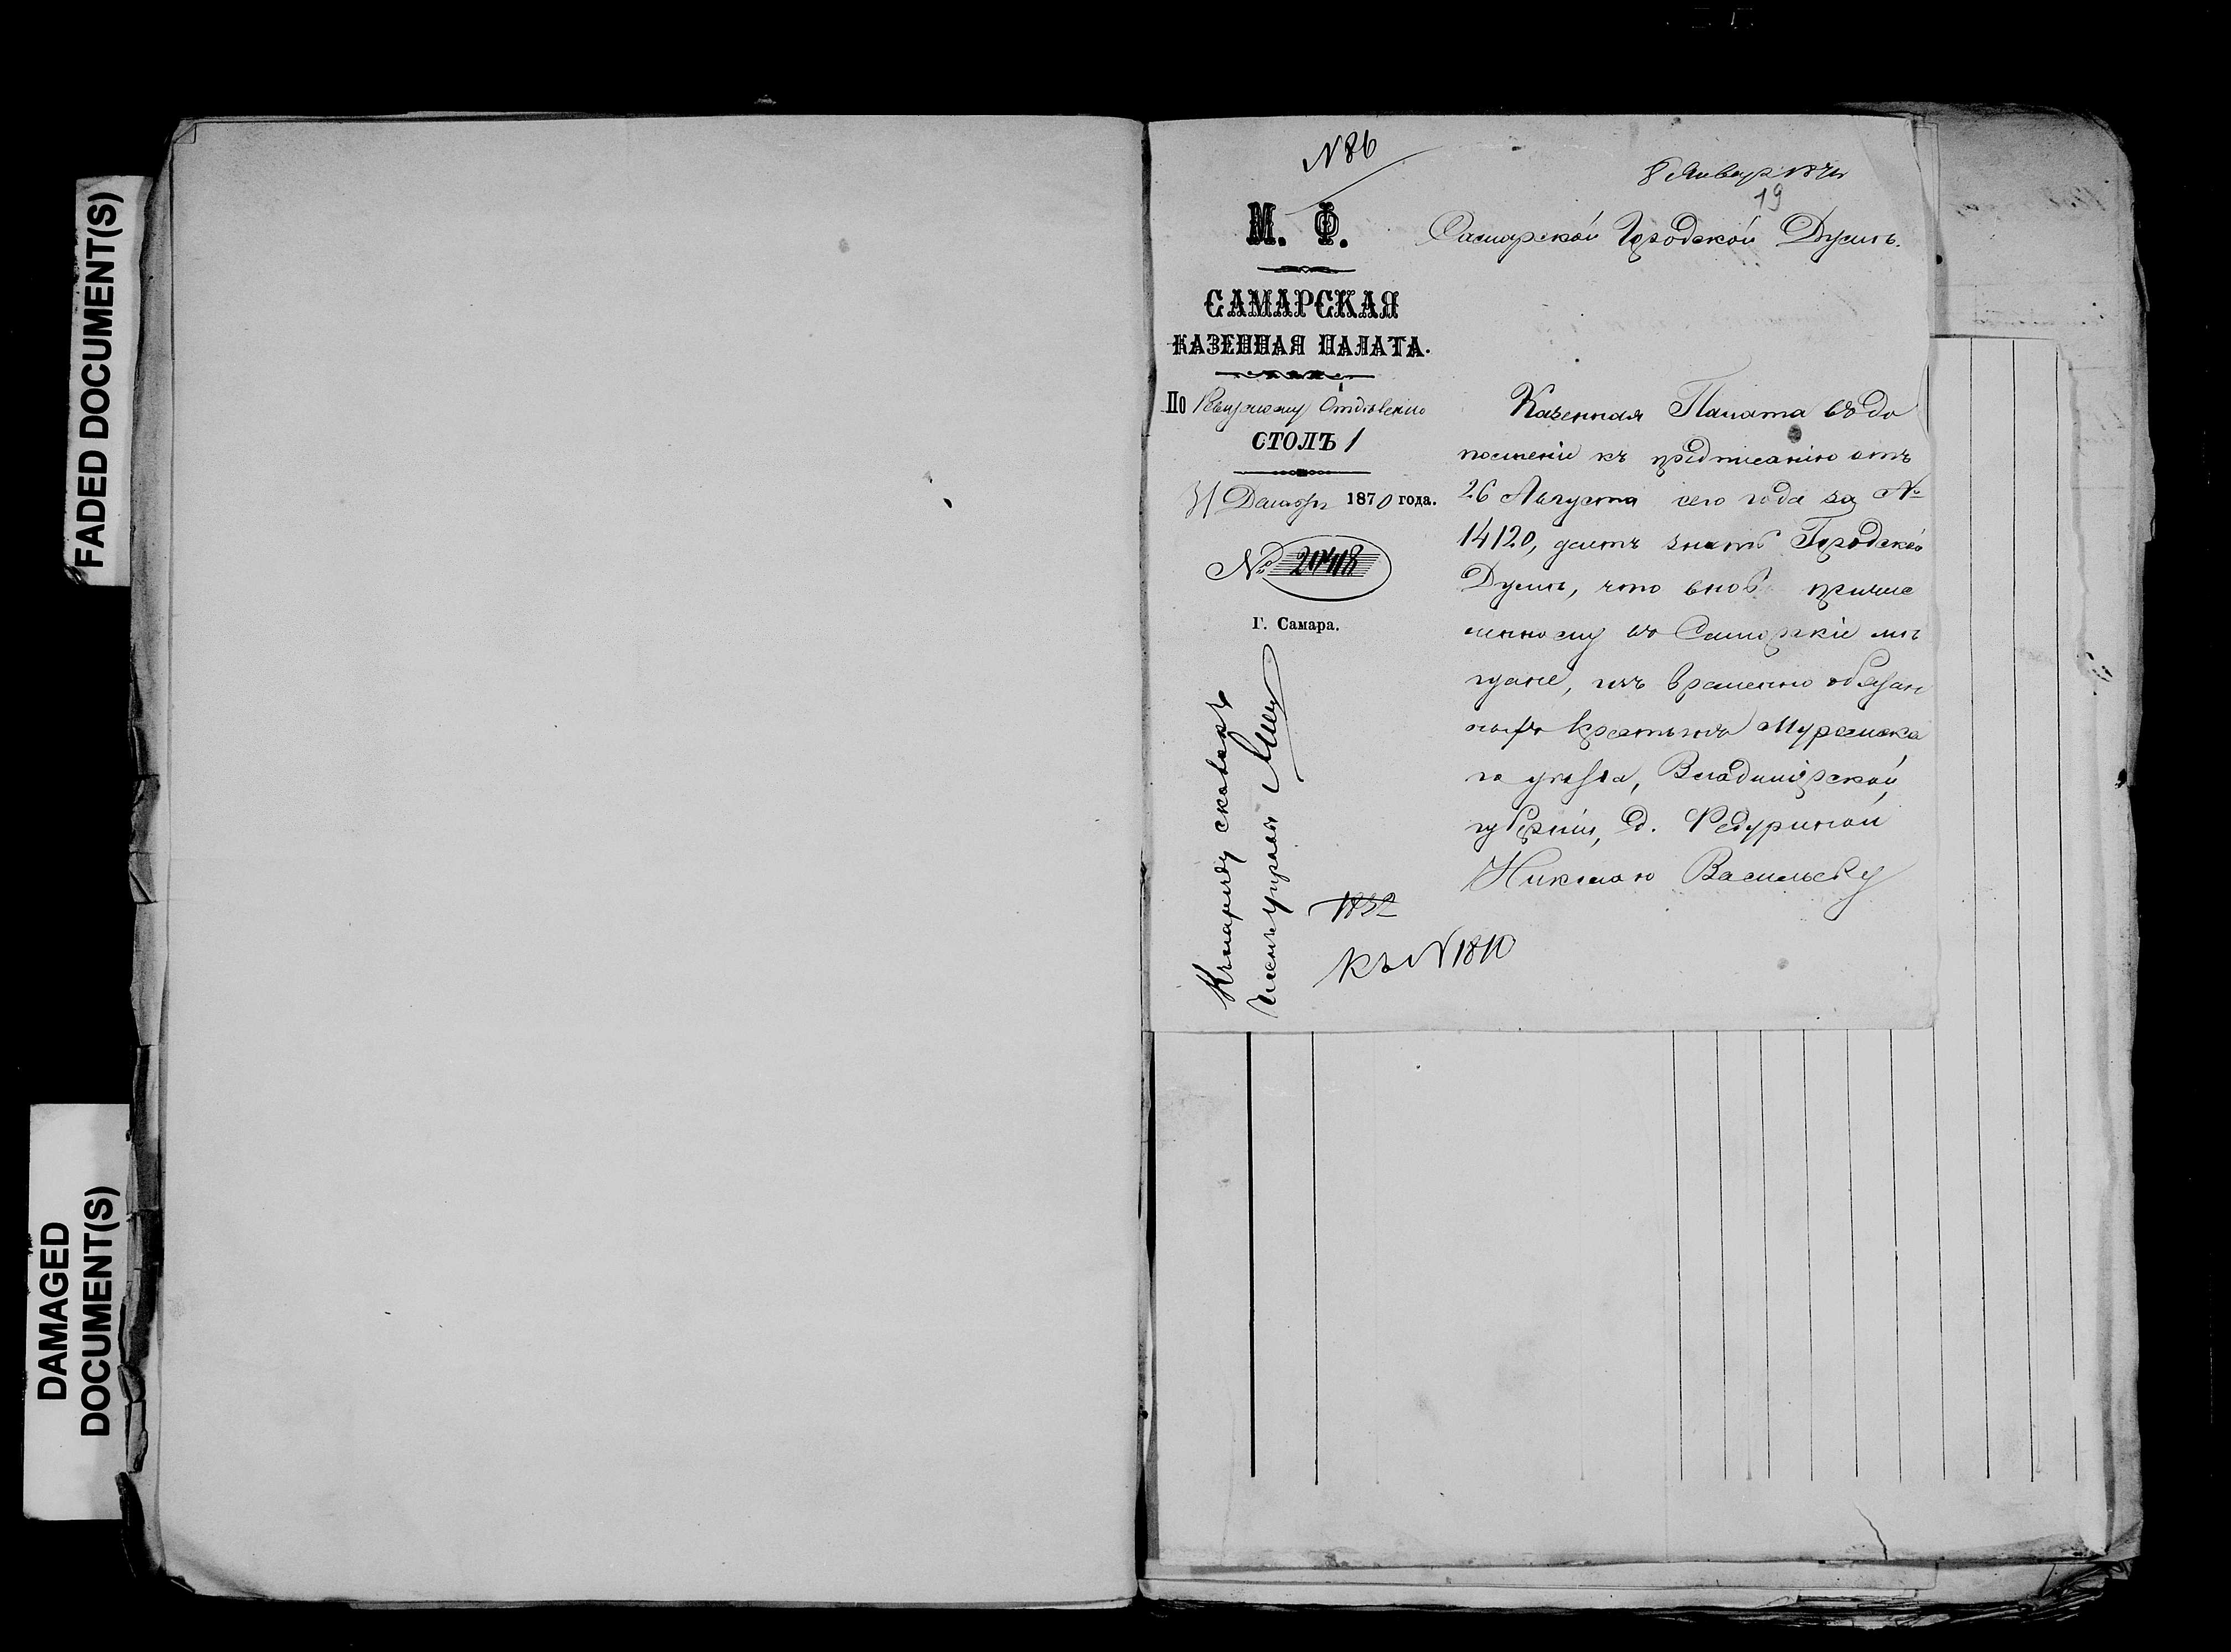 FADED DOCUMENT(S)
DAMAGED
DOCUMENT(S)
N 86
8 Январ 1871
19
М. Ф.
САМАРСКАЯ
КАЗЕННАЯ ПАЛАТА.
По Ревизскому Отдѣленію
СТОЛЪ 1
31 Декабря 1870 года.
№
Г. Самара.
Самарской Городской Думѣ.
Казенная Палата въ до
полненіе къ предписанію отъ
26 Августа сего года за №
14120, даетъ знать Городской
Думѣ, что вновь причис
ленному въ Самарскіе мѣ
щане, изъ временно обязан
ныхъ крестьянъ Муромска
го уѣзда, Владимірской
губерніи, д. Федуриной
Николаю Васильеву
1832
Къ N 1810
Къ наряду